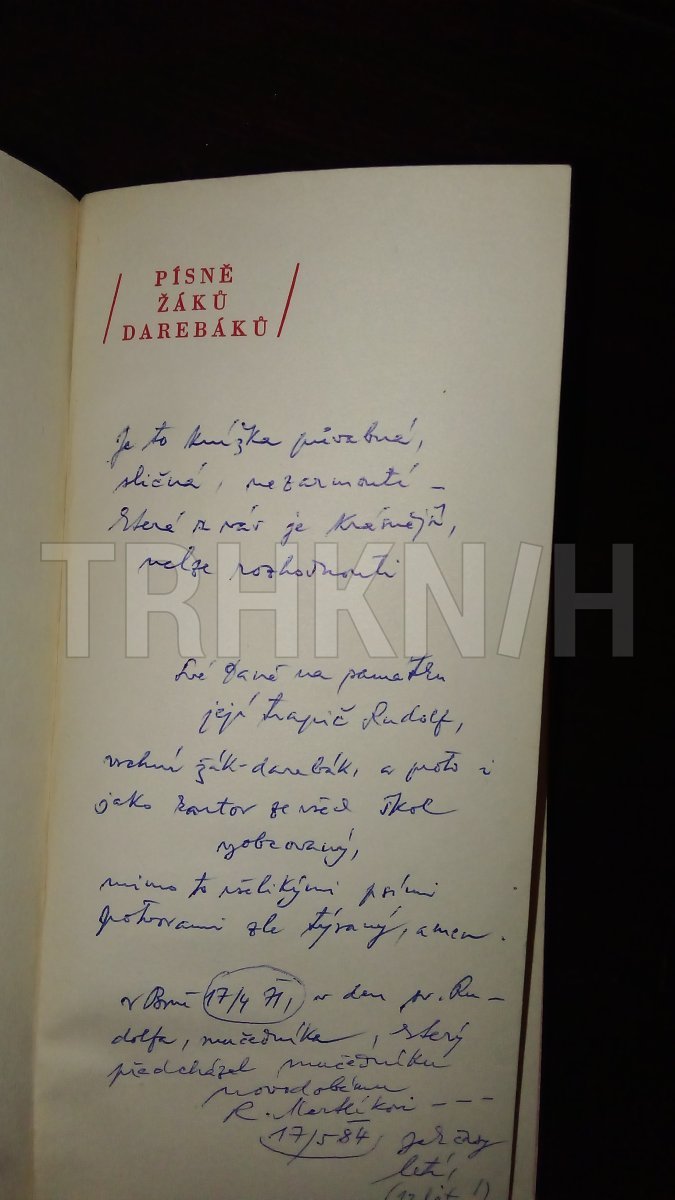 PÍSNĚ
ŽÁKŮ
DAREBÁKŮ
Je to knížka půvabná,
sličná, nezarmoutí –
která z vás je krásnější,
nelze rozhodnouti
TRHKNIH
Své Daně na památku
její trapič Rudolf,
vrchní žák-darebák, a proto i
jako kantor ze všech škol
vyobcovaný,
mimo to všelikými psími
potvorami zle týraný, amen.
v Brně 17/4 71, v den sv. Ru-
dolfa, mučedníka, který
předcházel mučedníku
novodobému
R. Mertlíkovi – – –
17/5 84 jak časy
letí,
(13 let!)